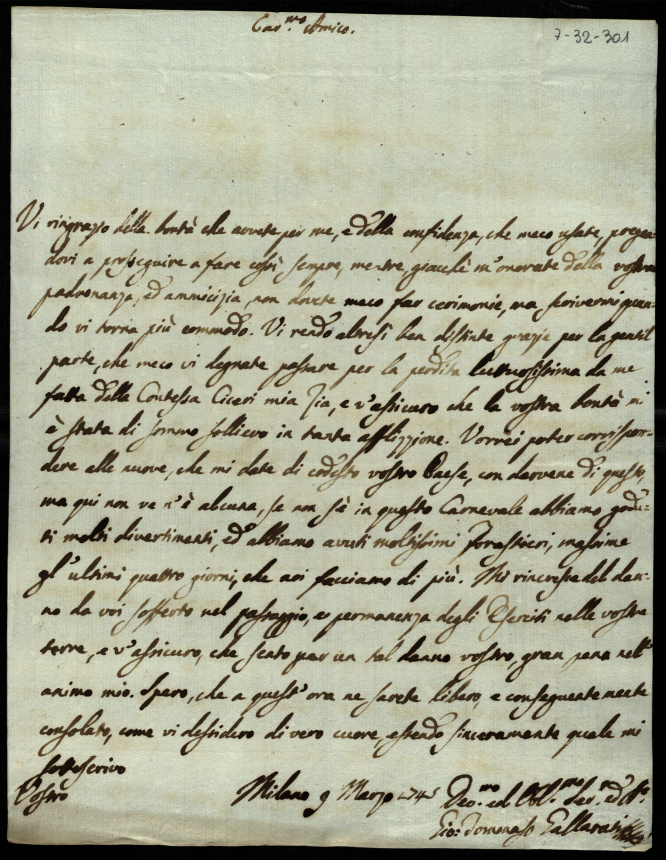 7-32-301
Car.mo Amico.
Vi ringrazio della bontà che avvete per me, e della confidenza, che meco usate, pregan-
dovi a proseguire a fare così sempre, mentre, giacchè m'onorate della vostra
padronanza, ed ammicizia, non dovete meco far cerimonie, ma scrivermi quan-
do vi torna più commodo. Vi rendo altresì ben distinte grazie per la gentil
parte, che meco vi degnate passare per la perdita luttuosissima da me
fatta della Contessa Ciceri mia Zia, e v'assicuro che la vostra bontà mi
è stata di sommo sollievo in tanta afflizzione. Vorrei poter corrispon-
dere alle nuove, che mi date di codesto vostro Paese, con darvene di questo,
ma qui non ve n'è alcuna, se non sè in questo Carnevale abbiamo godu-
ti molti divertimenti, ed abbiamo avuti moltissimi Forastieri, massime
gl'ultimi quattro giorni, che noi facciamo di più. Mi rincresce del dan-
no da voi sofferto nel passaggio, e permanenza degli Eserciti nelle vostre
terre, e v'assicuro, che sento per un tal danno vostro, gran pena nell'
animo mio. Spero, che a quest'ora ne sarete libero, e conseguentemente
consolato, come vi dessidero di vero cuore, essendo sinceramente quale mi
sottoscrivo
Vostro
Milano 9 Marzo Dev.mo ed Obl.mo Ser.e ed A.o
Gio: Tommaso Gallarati